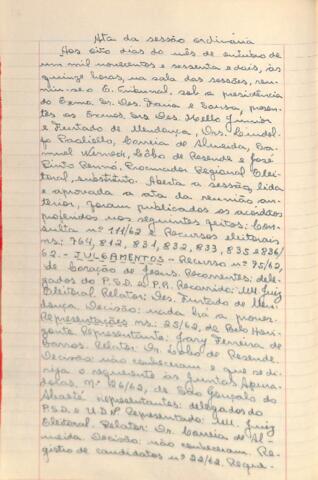 Ata da sessão ordinária
Aos oito dias do mês de outubro de
um mil novecentos e sessenta e dois, às
quinze horas, na sala das sessões, reu-
niu-se o E. Tribunal, sob a presidência
do Exmo. Sr. Des. Faria e Sousa, presen-
tes os Exmos. Srs. Des. Mello Junior
e Furtado de Mendonça, Drs. Lindol-
fo Paoliello, Correia de Almeida, Sa-
muel Werneck, Lôbo de Resende e José
Pinto Renó, Procurador Regional Elei-
toral, substituto. Aberta a sessão, lida
e aprovada a ata da reunião an-
terior, foram publicados os acórdãos
proferidos nos seguintes feitos: Con-
sulta nº 111/62 e Recursos eleitorais
ns.: 764, 812, 831, 832, 833, 835 e 836/
62. - JULGAMENTOS - Recurso nº 75/62,
de Coração de Jesus. Recorrentes: dele-
gados do P.S.D. e P.R. Recorrido: MM. Juiz
Eleitoral. Relator: Des. Furtado de Men-
donça. Decisão: nada há a prover.
Representações ns.: 25/62, de Belo Hori-
zonte. Representante: Ferreira de
Barros. Relator: Dr. Lôbo de Resende.
Decisão: não conheceram e que se di-
rija o requerente às Juntas Apura-
doras. Nº 26/62, de São Gonçalo do
Abaeté. Representantes: delegados do
P.S.D. e U.D.N. Representado: MM. Juiz
Eleitoral. Relator: Dr. Correia de Al-
meida. Decisão: não conheceram. Re-
gistro de candidatos nº 22/62. Reque-